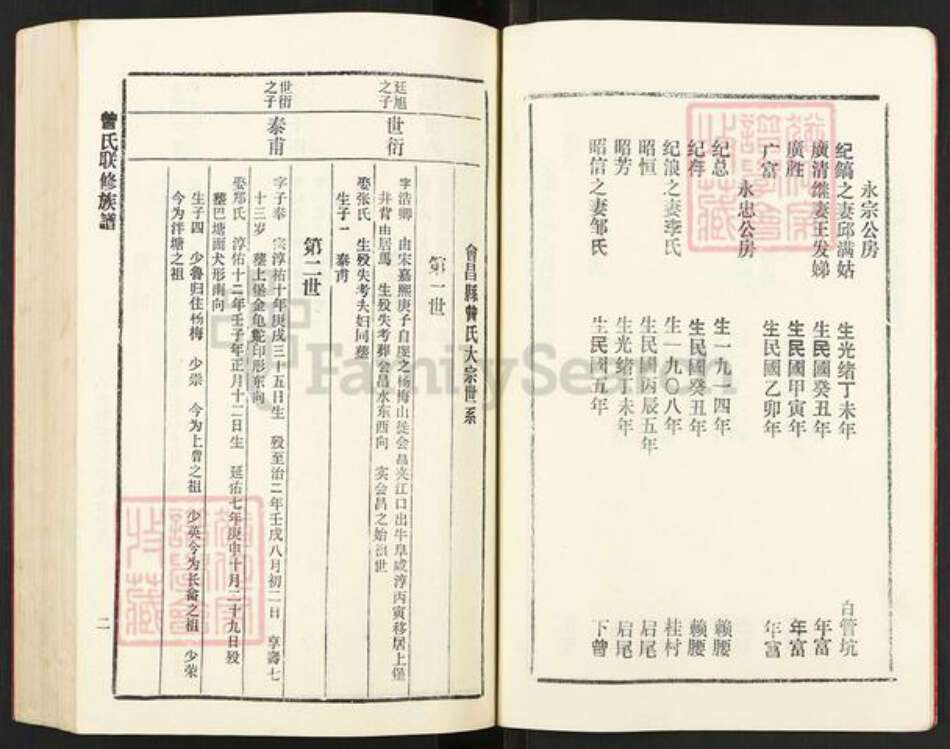 永宗公房
纪鎬之妻邱满姑 生光绪丁未年 白管坑
廣清继妻王发娣 生民國癸丑年 年富
廣胜 生民國甲寅年 年富
广富 生民國乙卯年 年富
永忠公房
纪总 生一九一四年 赖腰
纪存 生民國癸丑年 赖腰
纪浪之妻李氏 生一九〇八年 桂村
昭恒 生民國丙辰五年 启尾
昭芳 生光绪丁未年 启尾
昭信之妻邹氏 生民國五年 下曾
會昌縣曾氏大宗世系
第一世
廷旭之子
世衍
字浩卿 由宋嘉熙庚子自虔之杨梅山徙会昌夹江口出牛阜咸淳丙寅移居上堡
井背由居焉 生殁失考葬会昌水东西向 实会昌之始祖世
娶张氏 生殁失考夫妇同墓
生子一 秦甫
第二世
世衍之子
秦甫
字子奉 宗淳祐十年庚戌三十五日生 殁至治二年壬戌八月初二日 享壽七
十三岁 墓上堡金龟鮀印形东向
娶郑氏 淳佑十二年壬子年正月十二日生 延佑七年庚申十月二十九日殁
墓巴塘面犬形南向
生子四 少鲁归住杨梅 少崇 今为上曾之祖 少英今为长畲之祖 少荣
今为洋塘之祖
曾氏联修族譜
二
FamilySearch